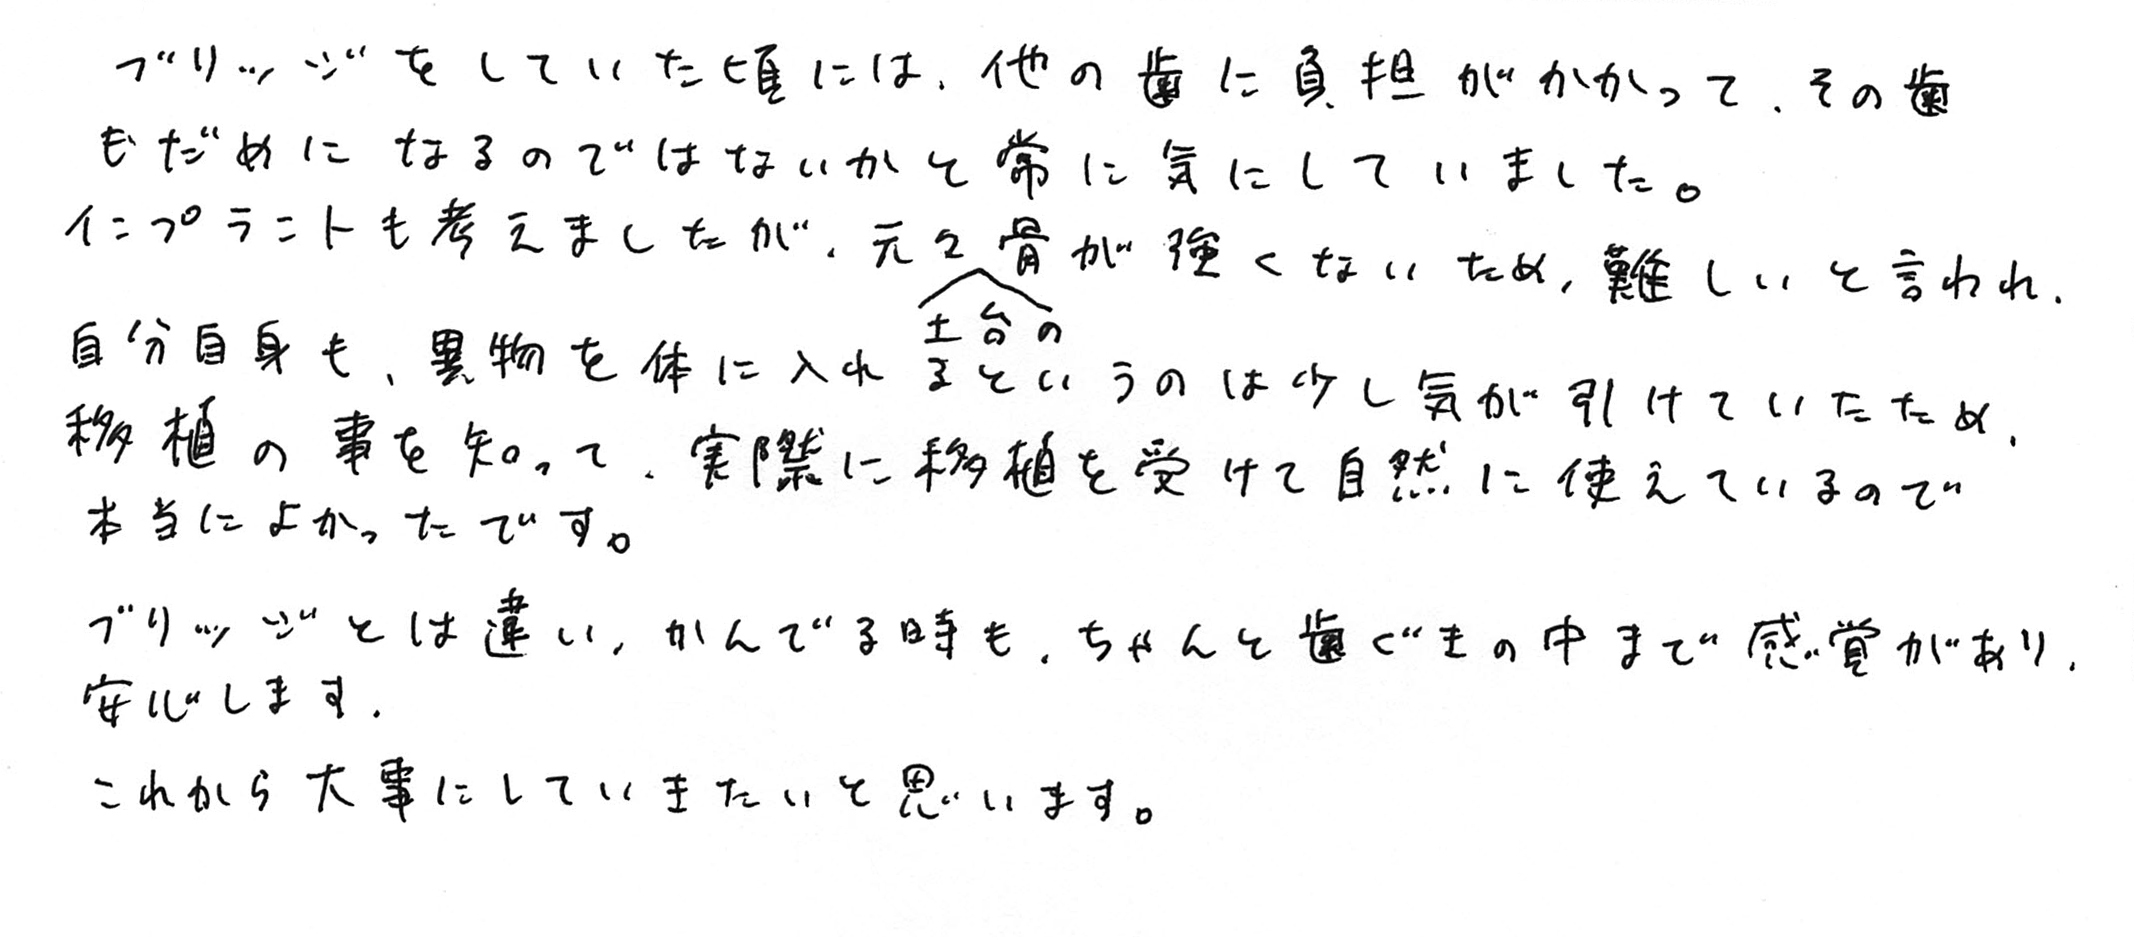 ブリッジをしていた頃には、他の歯に負担がかかって、その歯
もだめになるのではないかと常に気にしていました。
インプラントも考えましたが、元々土台の骨が強くないため、難しいと言われ、
自分自身も、異物を体に入れるというのは少し気が引けていたため、
移植の事を知って、実際に移植を受けて自然に使えているので
本当によかったです。
ブリッジとは違い、かんでる時も、ちゃんと歯ぐきの中まで感覚があり、
安心します。
これから大事にしていきたいと思います。